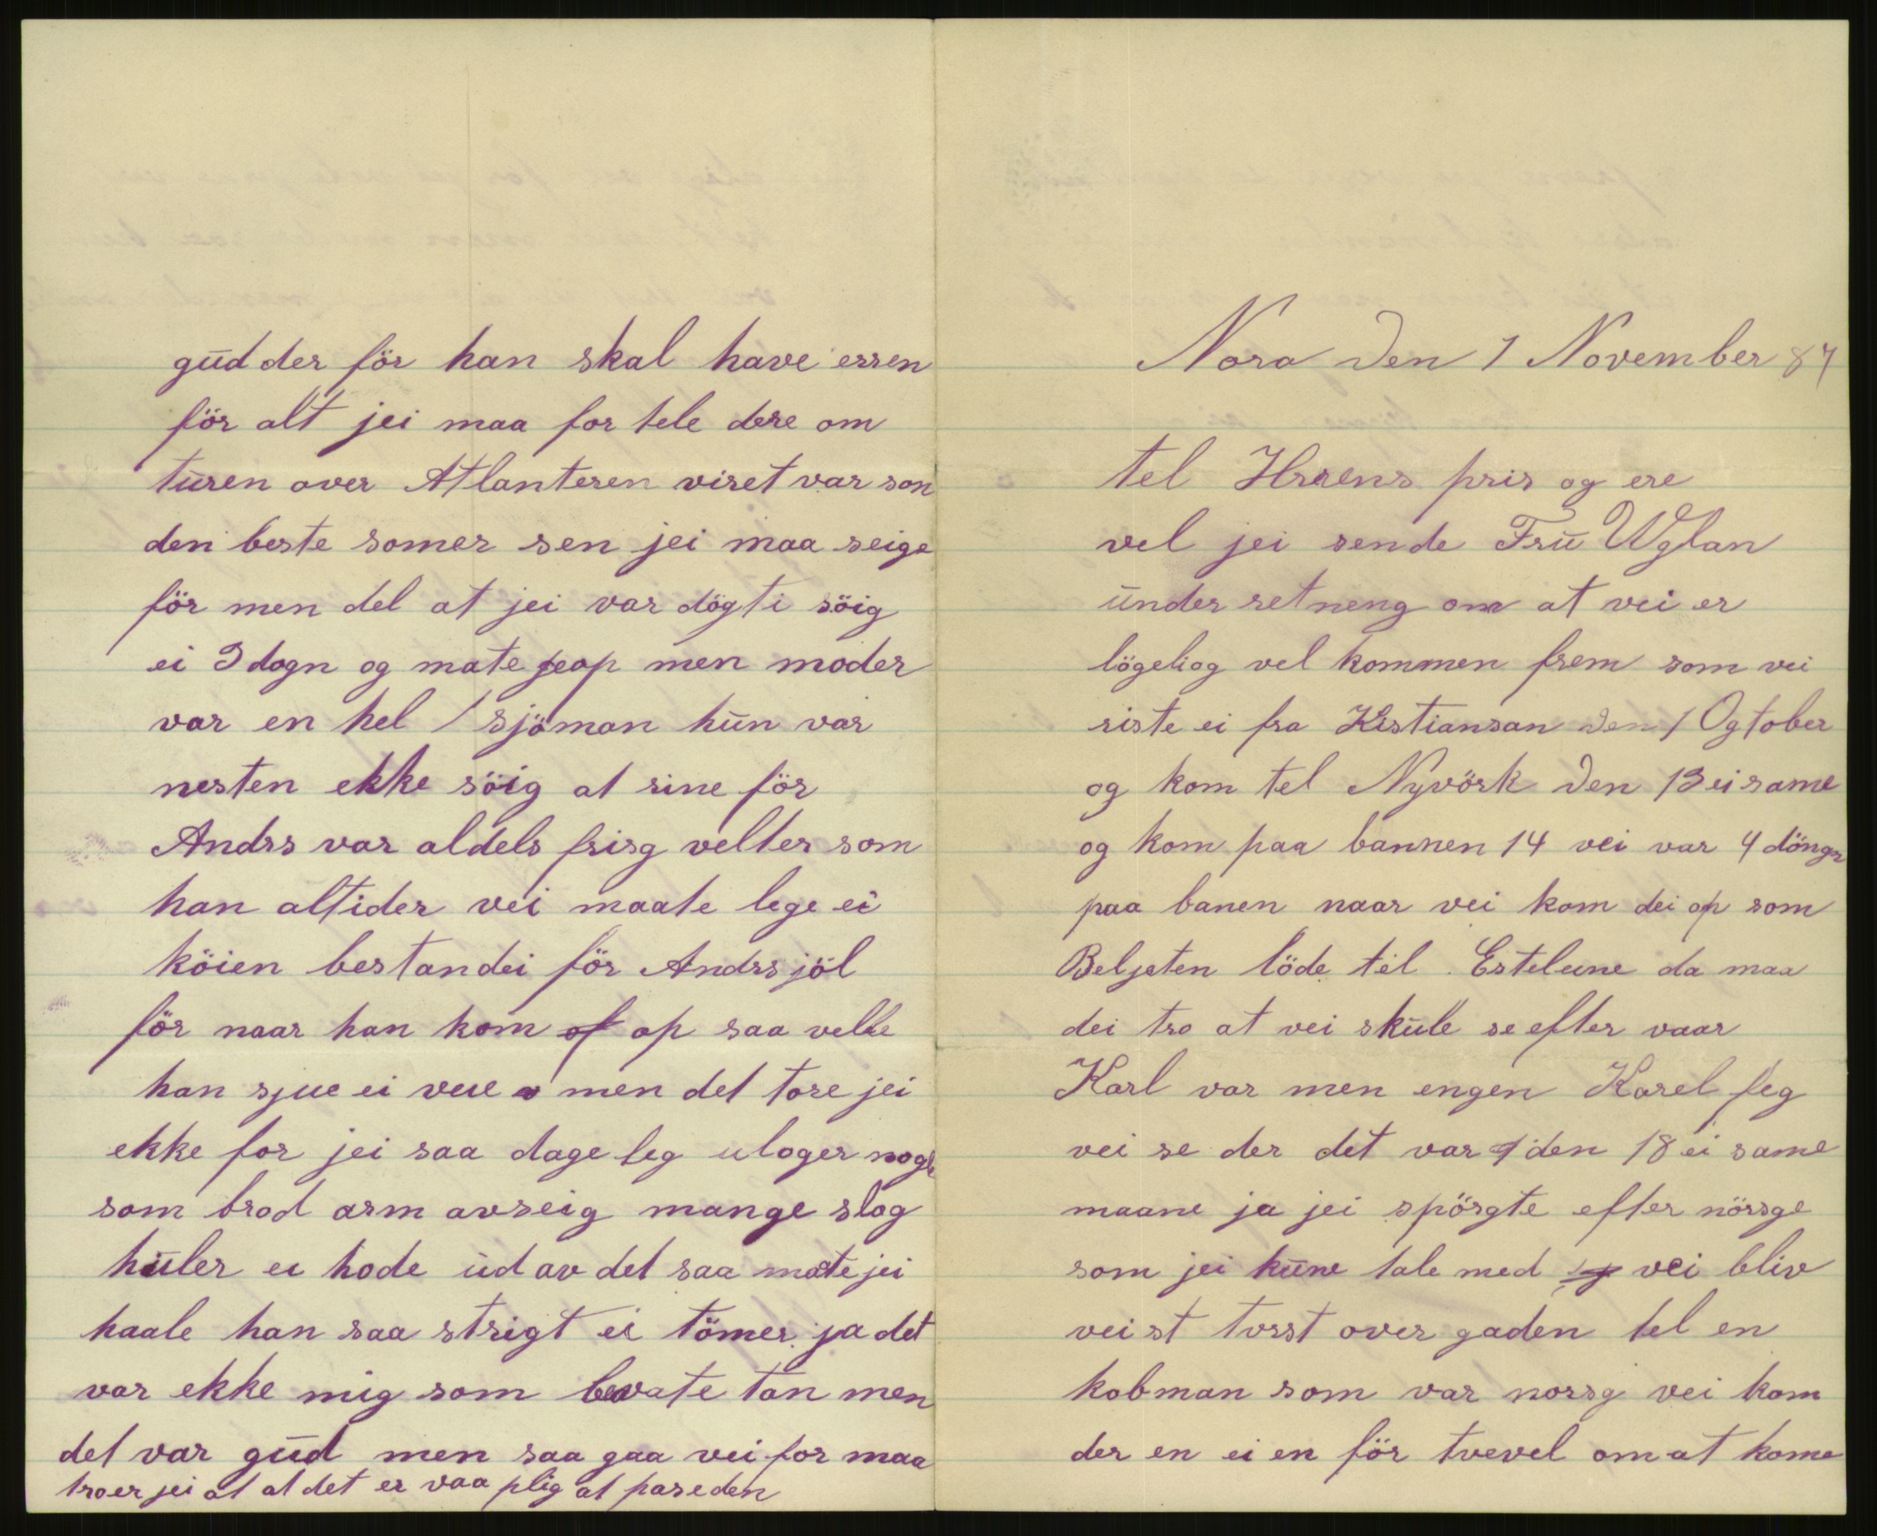 Nora den 1 November 87
tel Hrrens pris og ere
vel jei sende Frū Uglan
ūnder retneng om at vei er
lögeliog vel kommen frem som vei
riste ei fra Kistiansan den 1 Ogtober
og kom tel Nyvörk den 13 ei same
og kom paa bannen 14 vei var 4 döngn
paa banen naar vei kom dei op som
Beljeten löde tel Estelune da maa
dei tro at vei skūlle se efter vaar
Karl var men engen Karel feg
vei se der det var den 18 ei same
maane ja jei spörgte efter nörsge
som jei kūne tale med vei bliv
veist tvsst over gaden tel en
kobman som var norsg vei kom
der en ei en för tvevel om at kome
gūd der för han skal have erren
för alt jei maa for tele dere om
tūren over Atlanteren viret var son
den beste somer sen jei maa seige
för men del at jei var dögti söig
ei 3 dogn og mate op men moder
var en hel sjöman hūn var
nesten ekke söig at sine för
Andrs var aldels frisg velter som
han altider vei maate lege ei
köien bestandei för Andrs jöl
för naar han kom of op saa velle
han sjue ei veie men det tore jei
ekke for jei saa dage leg uloger nogle
som brod arm avseig mange slog
hūler ei hode ūd av det saa matte jei
haale han saa strigt ei tömer ja det
var ekke mig som bevate tan men
det var gūd men saa gaa vei for maa
troer jei at at det er vaa plig at paseden